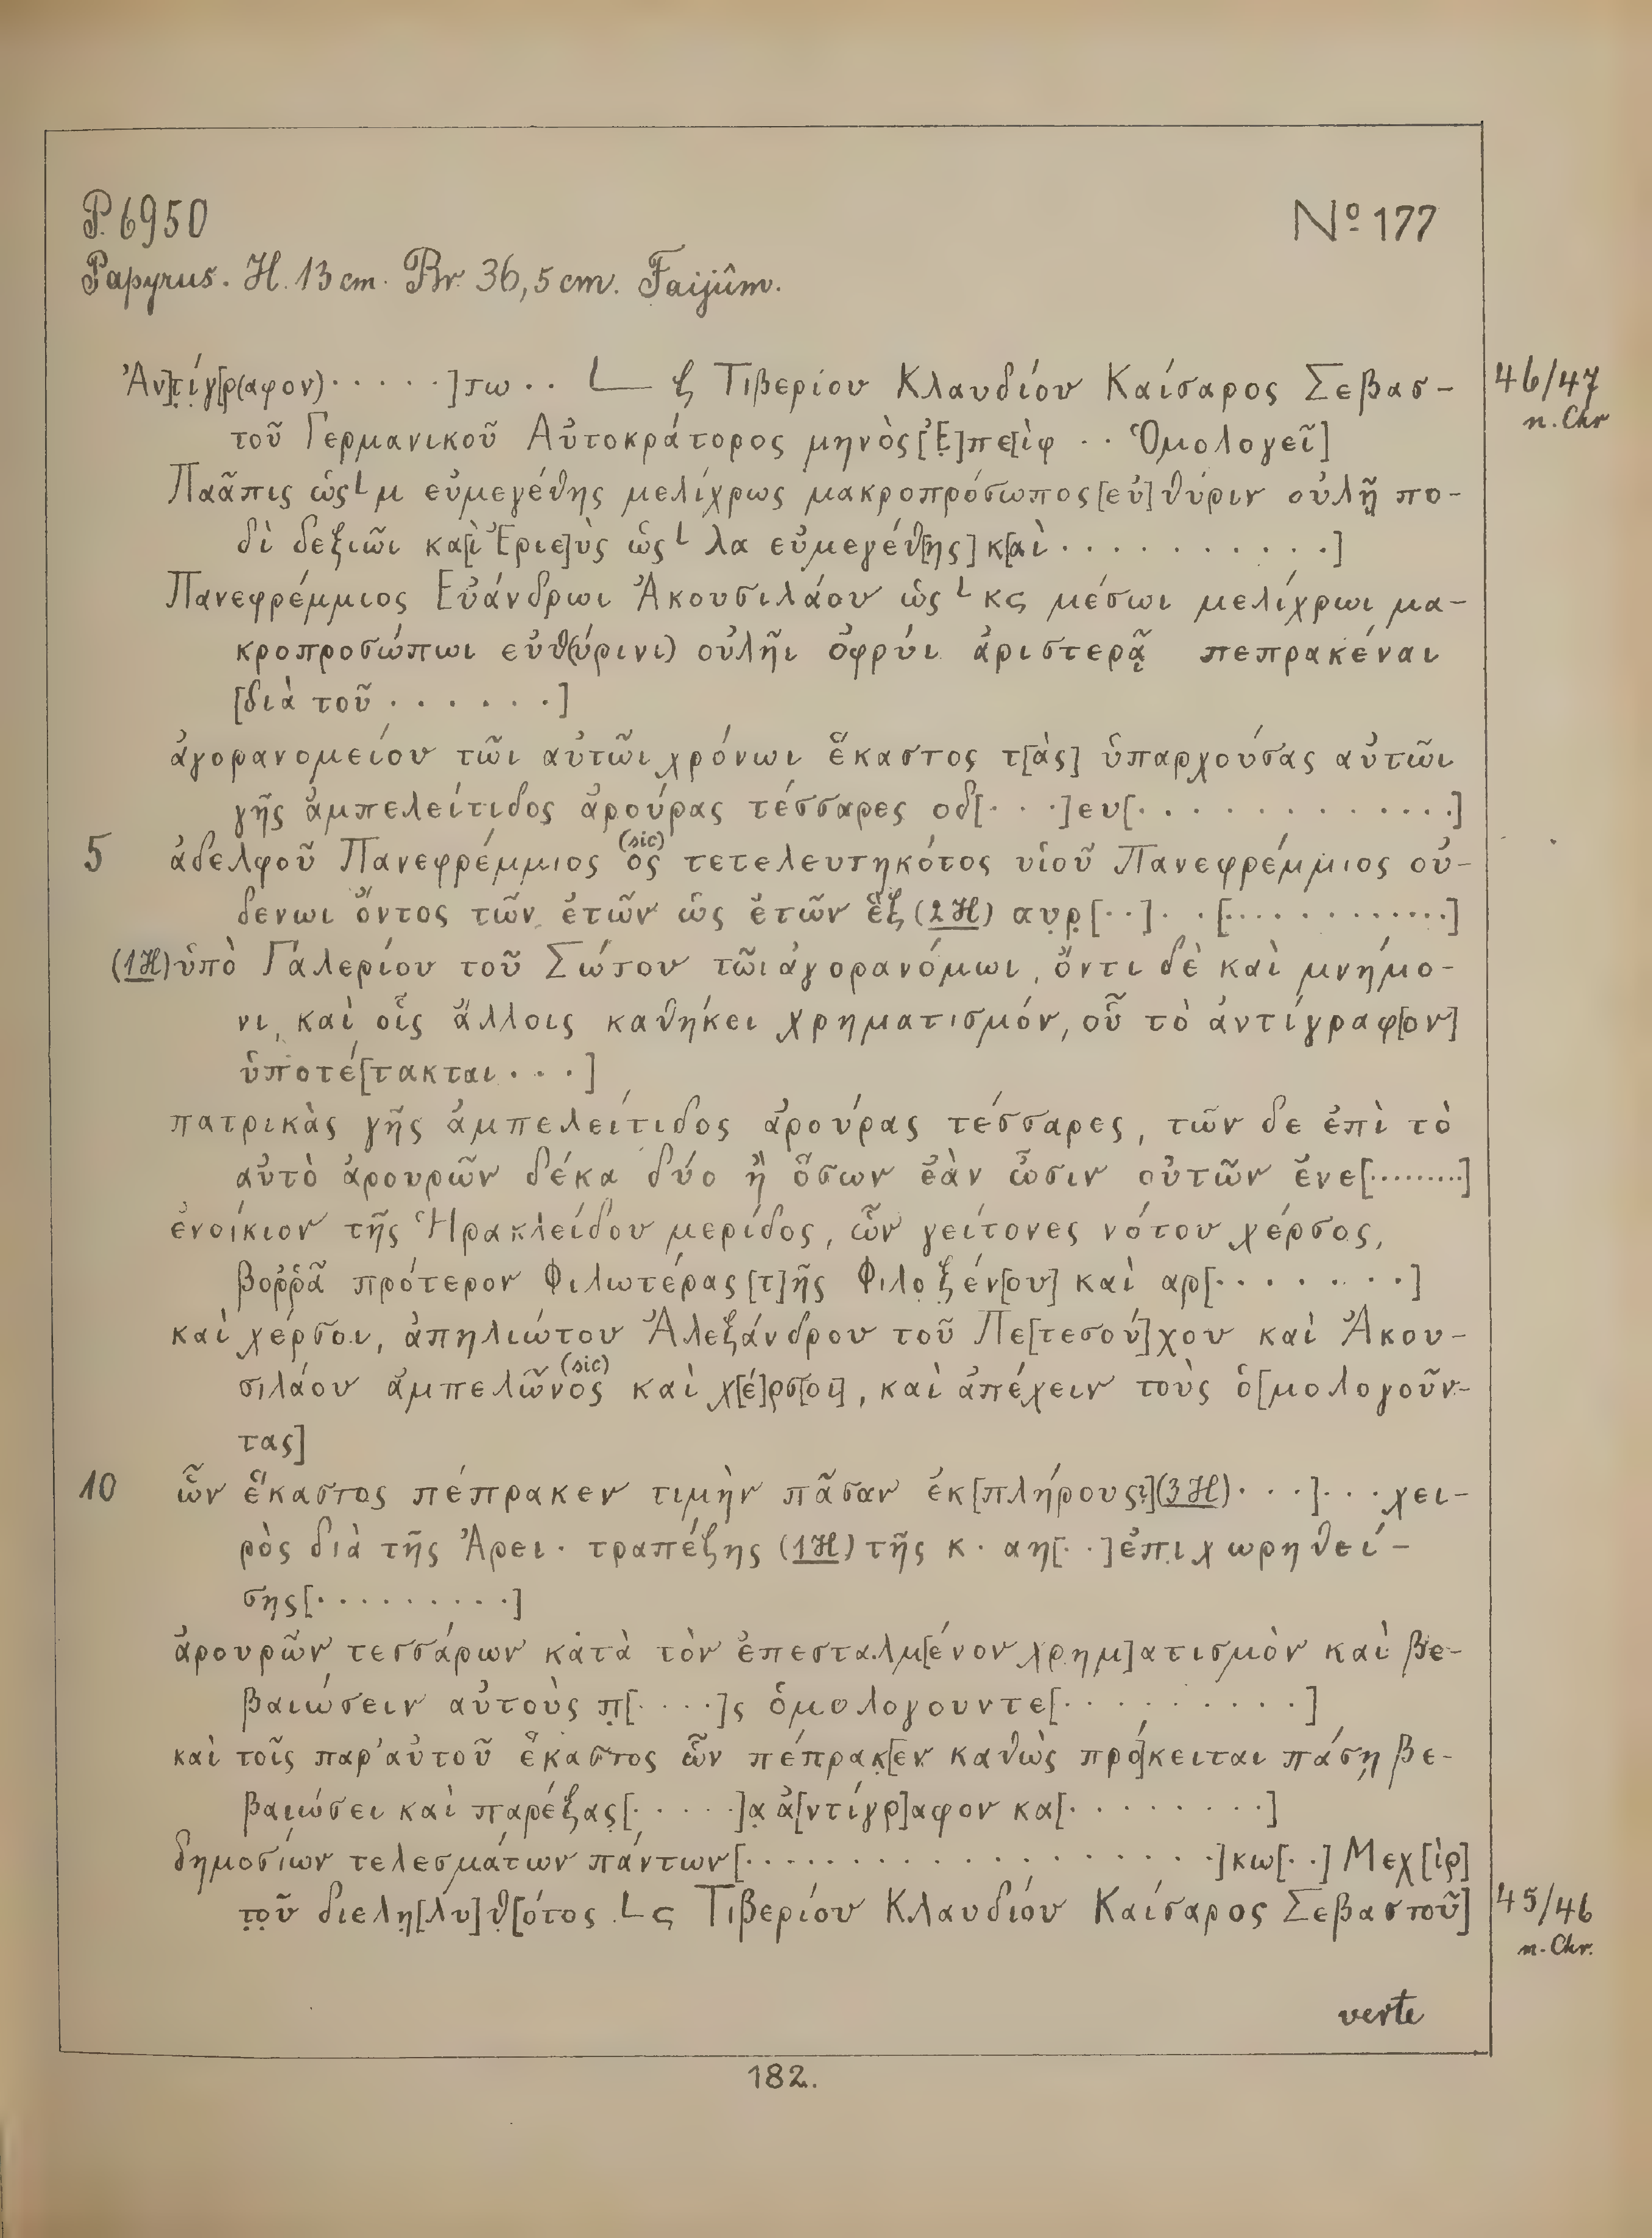 P. 6950
Nº 177
Papyrus. H. 13 cm. Br. 36,5 cm. Faijûm.
Ἀν]τίγ[ρ(αφον)·····]τω·· L ζ Τιβερίου Κλαυδίου Καίσαρος Σεβασ- 46/47 n. Chr
τοῦ Γερμανικοῦ Αὐτοκράτορος μηνὸς [Ἐ]πε[ὶφ ·· Ὁμολογεῖ]
Παᾶπις ὡς L μ εὐμεγέθης μελίχρως μακροπρόσωπος [εὐ]θύριν οὐλῇ πο-
δὶ δεξιῶι κα[ὶ Ἐριε]ὺς ὡς L λα εὐμεγέθ[ης] κ[αὶ···········]
Πανεφρέμμιος Εὐάνδρωι Ἀκουσιλάου ὡς L κς μέσωι μελίχρωι μα-
κροπροσώπωι εὐθ(ύρινι) οὐλῆι ὀφρύι ἀριστερᾷ πεπρακέναι
[διὰ τοῦ·······]
ἀγορανομείου τῶι αὐτῶι χρόνωι ἕκαστος τ[ὰς] ὑπαρχούσας αὐτῶι
γῆς ἀμπελείτιδος ἀρούρας τέσσαρες οδ[···]ευ[·············]
5 ἀδελφοῦ Πανεφρέμμιος ὃς (sic) τετελευτηκότος υἱοῦ Πανεφρέμμιος οὐ-
δενωι ὄντος τῶν ἐτῶν ὡς ἐτῶν ἓξ (2 H) αυρ[··]··[·············]
(1 H) ὑπὸ Γαλερίου τοῦ Σώτου τῶι ἀγορανόμωι, ὄντι δὲ καὶ μνήμο-
νι, καὶ οἷς ἄλλοις καθήκει χρηματισμόν, οὗ τὸ ἀντίγραφ[ον]
ὑποτέ[τακται···]
πατρικὰς γῆς ἀμπελείτιδος ἀρούρας τέσσαρες, τῶν δε ἐπὶ τὸ
αὐτὸ ἀρουρῶν δέκα δύο ἢ ὅσων ἐὰν ὦσιν οὐτῶν ἔνε[·········]
ἐνοίκιον τῆς Ἡρακλείδου μερίδος, ὧν γείτονες νότου χέρσος,
βορρᾶ πρότερον Φιλωτέρας [τ]ῆς Φιλοξέν[ου] καὶ αρ[········]
καὶ χέρσοι, ἀπηλιώτου Ἀλεξάνδρου τοῦ Πε[τεσού]χου καὶ Ἀκου-
σιλάου ἀμπελῶνος (sic) καὶ χ[έ]ρσ[οι], καὶ ἀπέχειν τοὺς ὁ[μολογοῦν-
τας]
10 ὧν ἕκαστος πέπρακεν τιμὴν πᾶσαν ἐκ[πλήρους?] (3 H)···]···χει-
ρὸς διὰ τῆς Ἀρει· τραπέζης (1 H) τῆς κ·αη[··]ἐπιχωρηθεί-
σης[·········]
ἀρουρῶν τεσσάρων κατὰ τὸν ἐπεσταλμ[ένον χρημ]ατισμὸν καὶ βε-
βαιώσειν αὐτοὺς π[····]ς ὁμολογουντε[·········]
καὶ τοῖς παρ’ αὐτοῦ ἕκαστος ὧν πέπρακ[εν καθὼς πρό]κειται πάσῃ βε-
βαιώσει καὶ παρέξας[·····]α ἀ[ντίγρ]αφον κα[········]
δημοσίων τελεσμάτων πάντων[··················]κω[··] Μεχ[ὶρ]
τοῦ διελη[λυ]θ[ότος L ς Τιβερίου Κλαυδίου Καίσαρος Σεβαστοῦ] 45/46 n. Chr.
verte
182.